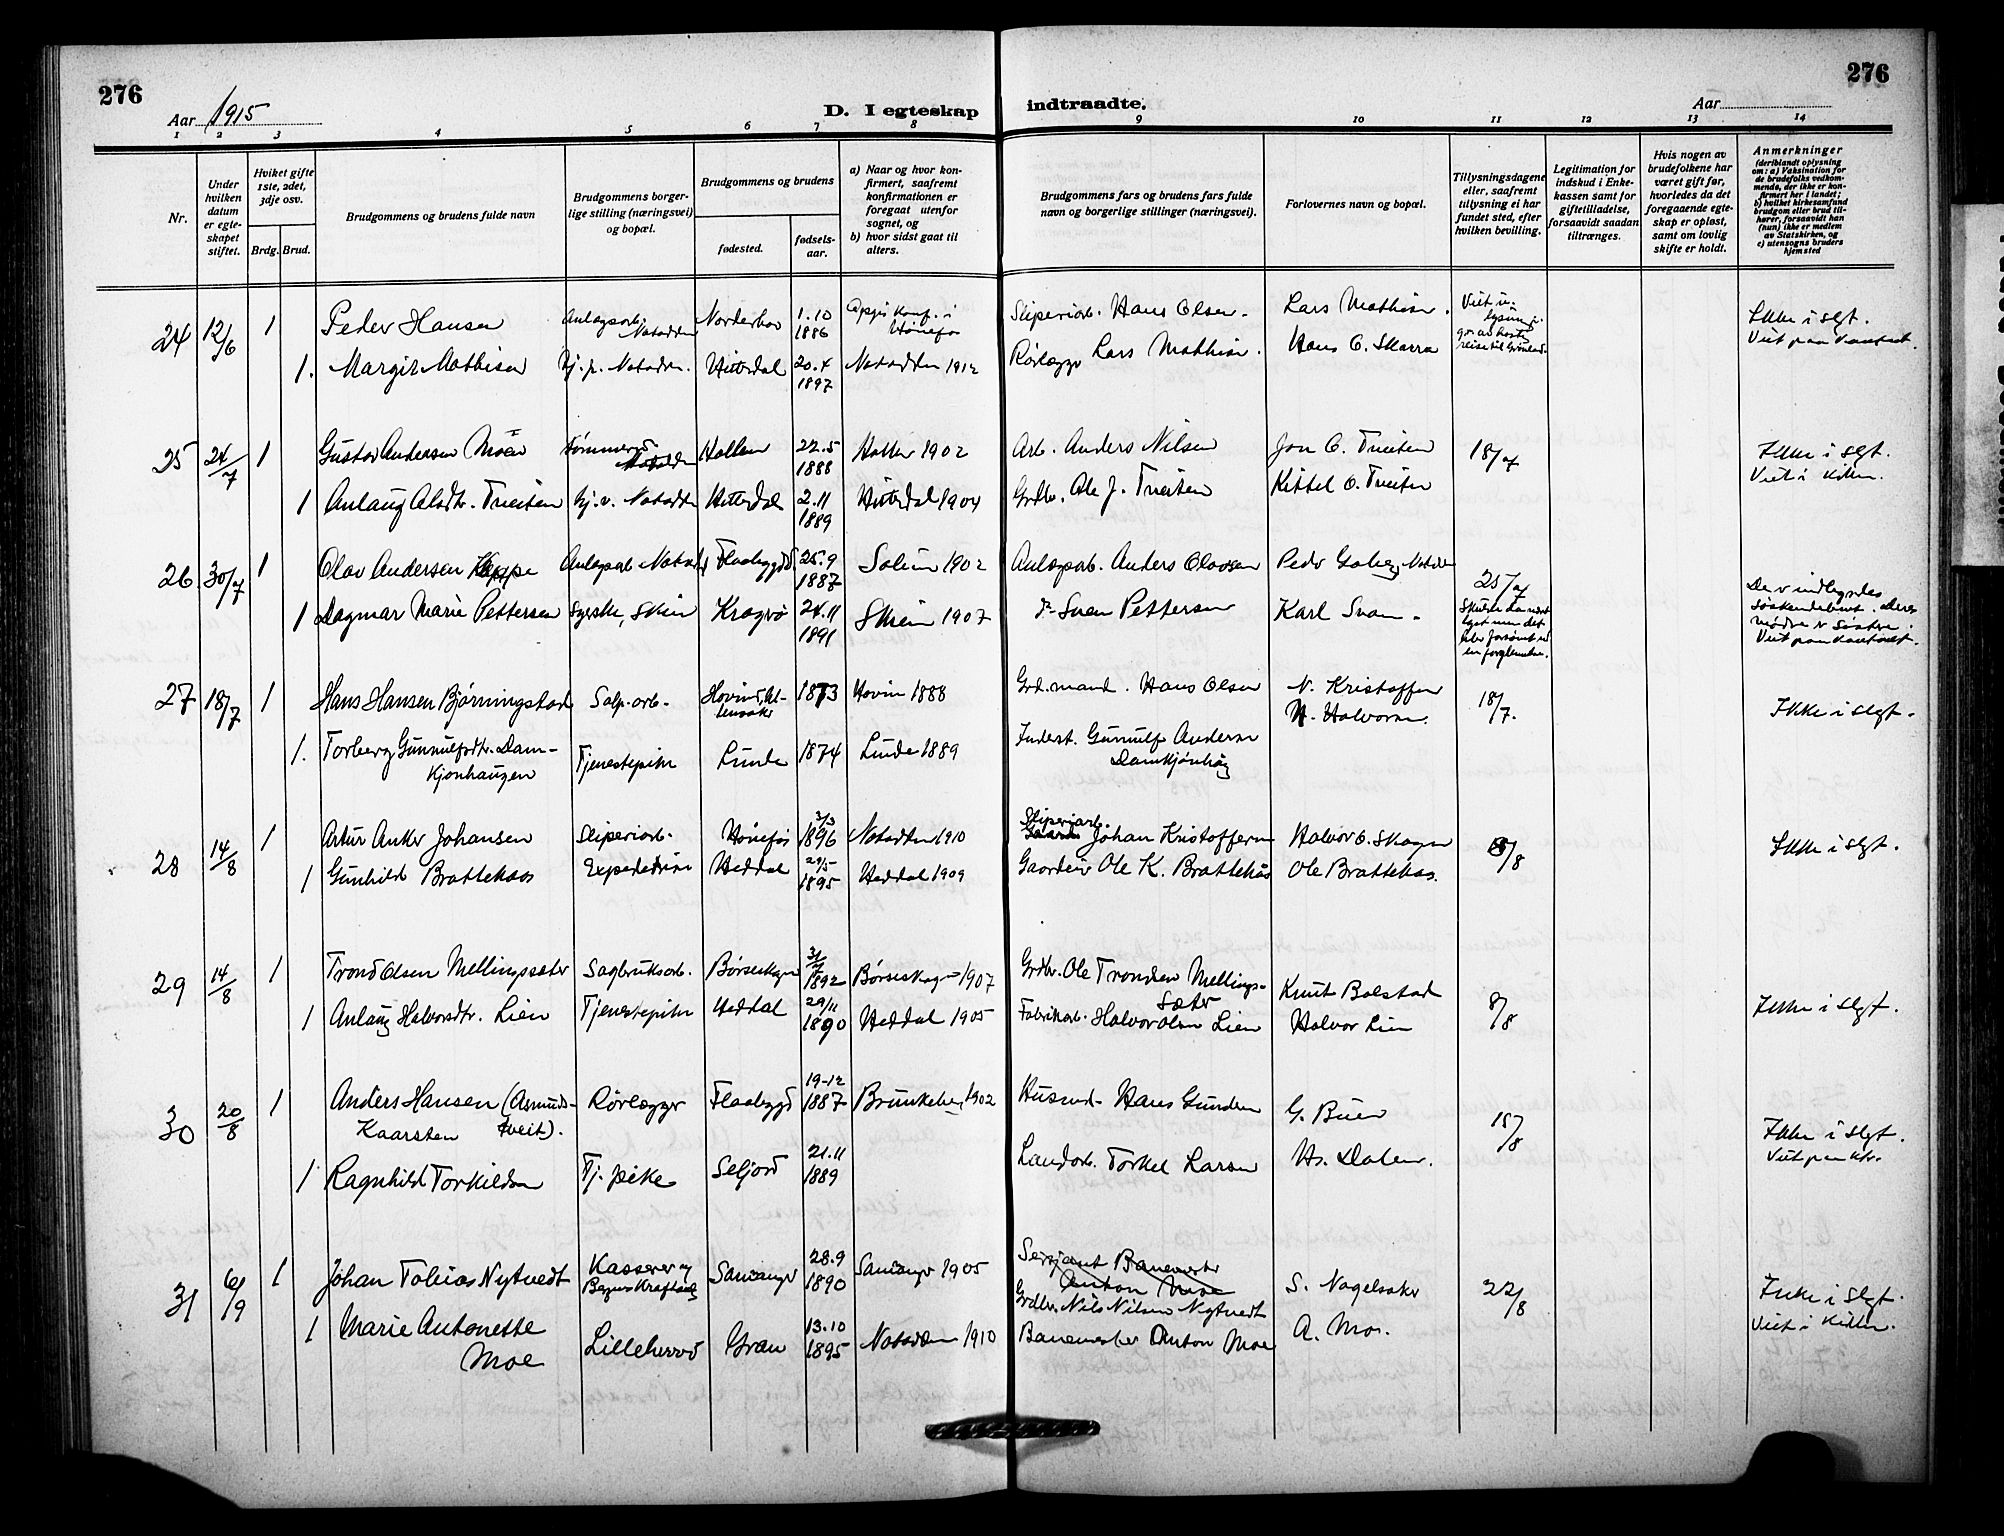 276
276
Aar 1915
D. I egteskap
indtraadte.
Aar
1 2 3 4 5 6 7 8 9 10 11 12 13 14
Nr.
Under hvilken datum er egteskapet stiftet.
Hviket gifte 1ste, 2det, 3dje osv.
Brdg. Brud.
Brudgommens og brudens fulde navn
Brudgommens borgerlige stilling (næringsvei) og bopæl.
Brudgommens og brudens
fødested.
fødselsaar.
a) Naar og hvor konfirmert, saafremt konfirmationen er foregaat utenfor sognet, og
b) hvor sidst gaat til alters.
Brudgommens fars og brudens fars fulde navn og borgerlige stillinger (næringsvei).
Forlovernes navn og bopæl.
Tillysningsdagene eller, saafremt tillysning ei har fundet sted, efter hvilken bevilling.
Legitimation for indskud i Enkekassen samt for giftetilladelse, forsaavidt saadan tiltrænges.
Hvis nogen av brudefolkene har været gift før, hvorledes da det foregaaende egteskap er opløst, samt om lovlig skifte er holdt.
Anmerkninger (deriblandt oplysning om: a) Vaksination for de brudefolks vedkommende, der ikke er konfirmert her i landet; b) hvilket kirkesamfund brudgom eller brud tilhører, forsaavidt han (hun) ikke er medlem av Statskirken, og c) utensogns bruders hjemsted
24 12/6 1 Peder Hansen Anlægsarb. Notodden 1.10 1886 Hønefos Sliperiarb. Hans Olsen. Lars Mathisen. Ikke i slgt.
1. Margit Mathisen Hj. p. Notodden. Hitterdal 20.4 1897 Notodden 1912 Rørlægger Lars Mathisen. Hans C. Skarra
25 24/7 1 Gustav Andersen Moen Hollen 22.5 1888 Hollen 1902 Arb. Anders Nilsen Jon O. Tveiten 18/7 Ikke i slgt.
1 Anlaug Olsdtr. Tveiten Hj. v. Notodden Hitterdal 2.11 1889 Hitterdal 1904 Grdbr. Ole J. Tveiten Kittel O. Tveiten Viet i kirken.
26 30/7 1 Olav Andersen Kleppe Anlægsarb. Notodd. Flaabygd 25.9 1887 Solum 1902 Anlægsarb. Anders Olavsen 25/7
1 Dagmar Marie Pettersen Syerske, Skien Kragerø 24.11 1891 Skien 1907 Do Sven Pettersen Karl Svan Viet paa kontoret.
27 18/7 1 Hans Hansen Bjørningstad Salp.arb. Hovind, Ullensaker 1873 Hovin 1888 Grd.mand. Hans Olsen N. Kristoffersen 18/7. Ikke i slgt.
H. Halvorsen.
1. Torberg Gunnulfsdtr. Dam-Kjønhaugen Tjenestepike Lunde 1874 Lunde 1889 Inderst. Gunnulf Andersen Damkjønhaug
28 14/8 1 Artur Anker Johansen Sliperiarb. Hønefos 3/3 1896 Notodden 1910 Sliperiarb. Johan Kristoffersen Halvor O. Skogen 8/8 Ikke i slgt.
1 Gunhild Brattekaas Expeditrice Heddal 29/5 1895 Heddal 1909 Gaardeier Ole K. Brattekaas Ole Brattekaas.
29 14/8 1 Trond Olsen Mellingsæter Sagbruksarb. Børseskogn 31/7 1892 Børseskogn 1907 Grdbr. Ole Trondsen Mellingsæter Knut Bolstad 8/8 Ikke i slgt.
1 Anlaug Halvorsdtr. Lien Tjenestepike Heddal 29/11 1890 Heddal 1905 Fabrikarb. Halvor Olsen Lien Halvor Lien
30 20/8 1 Anders Hansen (Asmundstveit). Kaarsten Rørlægger Flaabygd 19-12 1887 Brunkeberg 1902 Husmd. Hans Gundersen G. Buer 15/8 Ikke i slgt.
1 Ragnhild Torkildsen Tj. pike Seljord 21.11 1889 Landarb. Torkel Larsen Hs. Dalen. Viet paa ktr.
31 6/9 1 Johan Tobias Nytvedt Kasserer og Samnanger 28.9 1890 Samnanger 1905 Sersjant Banemester Anton Moe Grdbr. Nils Nilsen Nytvedt S. Nagelsaker 22/8 Ikke i slgt.
1 Marie Antonette Moe Lilleherred Gran 13.10 1895 Notodden 1910 Banemester Anton Moe A. Moe. Viet i kirken.